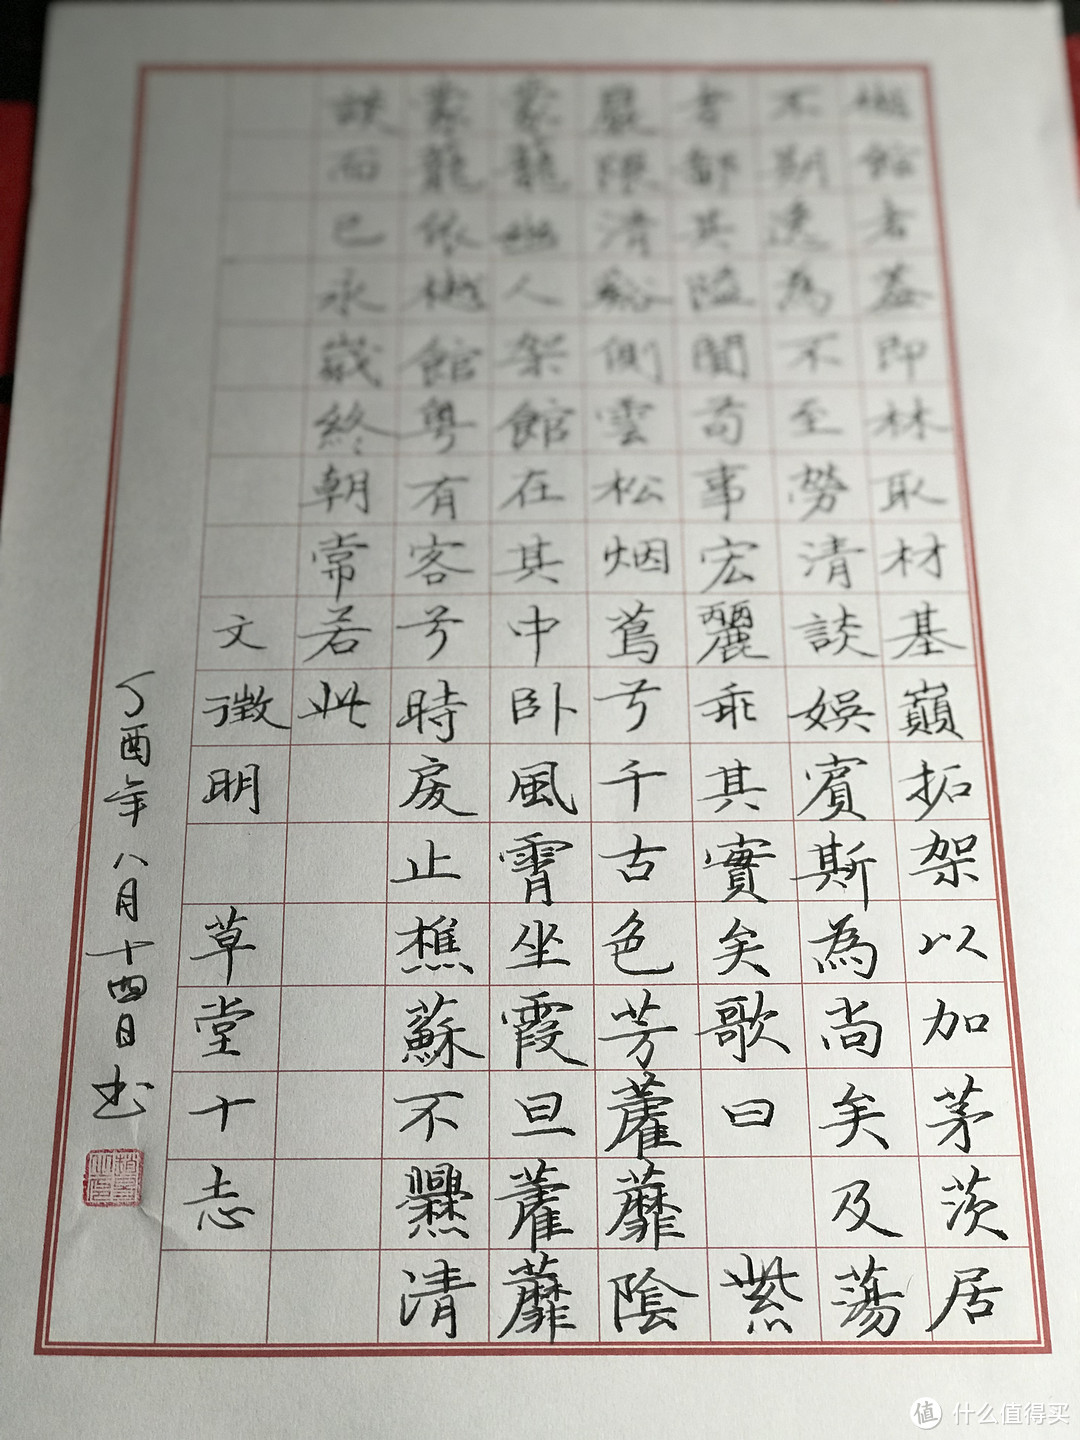 樾館者蓋即林取材基巔拓架以加茅茨居
不期逺為不至勞清談娛賓斯為尚矣及蕩
者都其隘閴苟事宏麗乖其實矣歌曰 紫
巖隈清谿側雲松烟蔦兮千古色芳藿蘼陰
蒙蘢幽人架館在其中卧風霄坐霞旦藿蘼
蒙蘢依樾館粤有客兮時戾止樵蘇不爨清
談而已永歲終朝常若此
文徵明 草堂十志
丁酉年八月十四日书
值 什么值得买